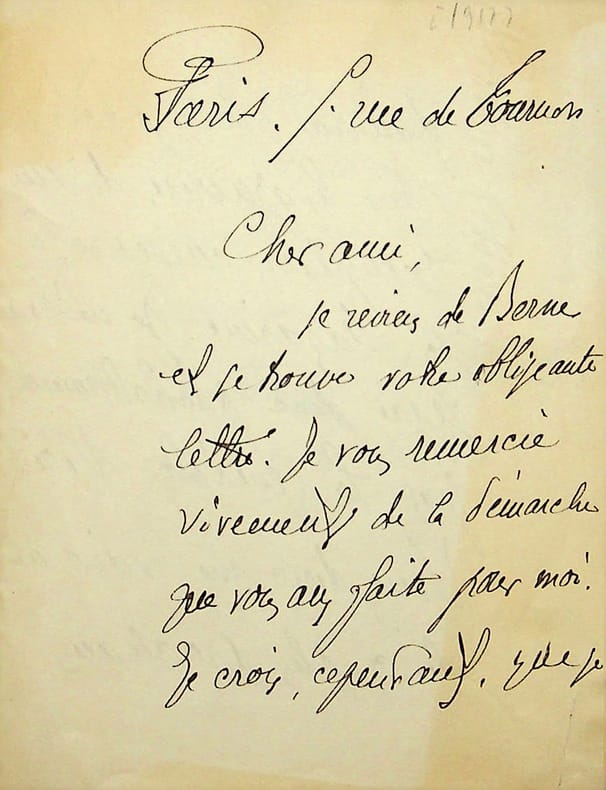 Paris. 5. rue de Tournon
Cher ami,
je reviens de Berne
et je trouve votre obligeante
lettre. Je vous remercie
vivement de la démarche
que vous avez faite pour moi.
Je crois, cependant, que je